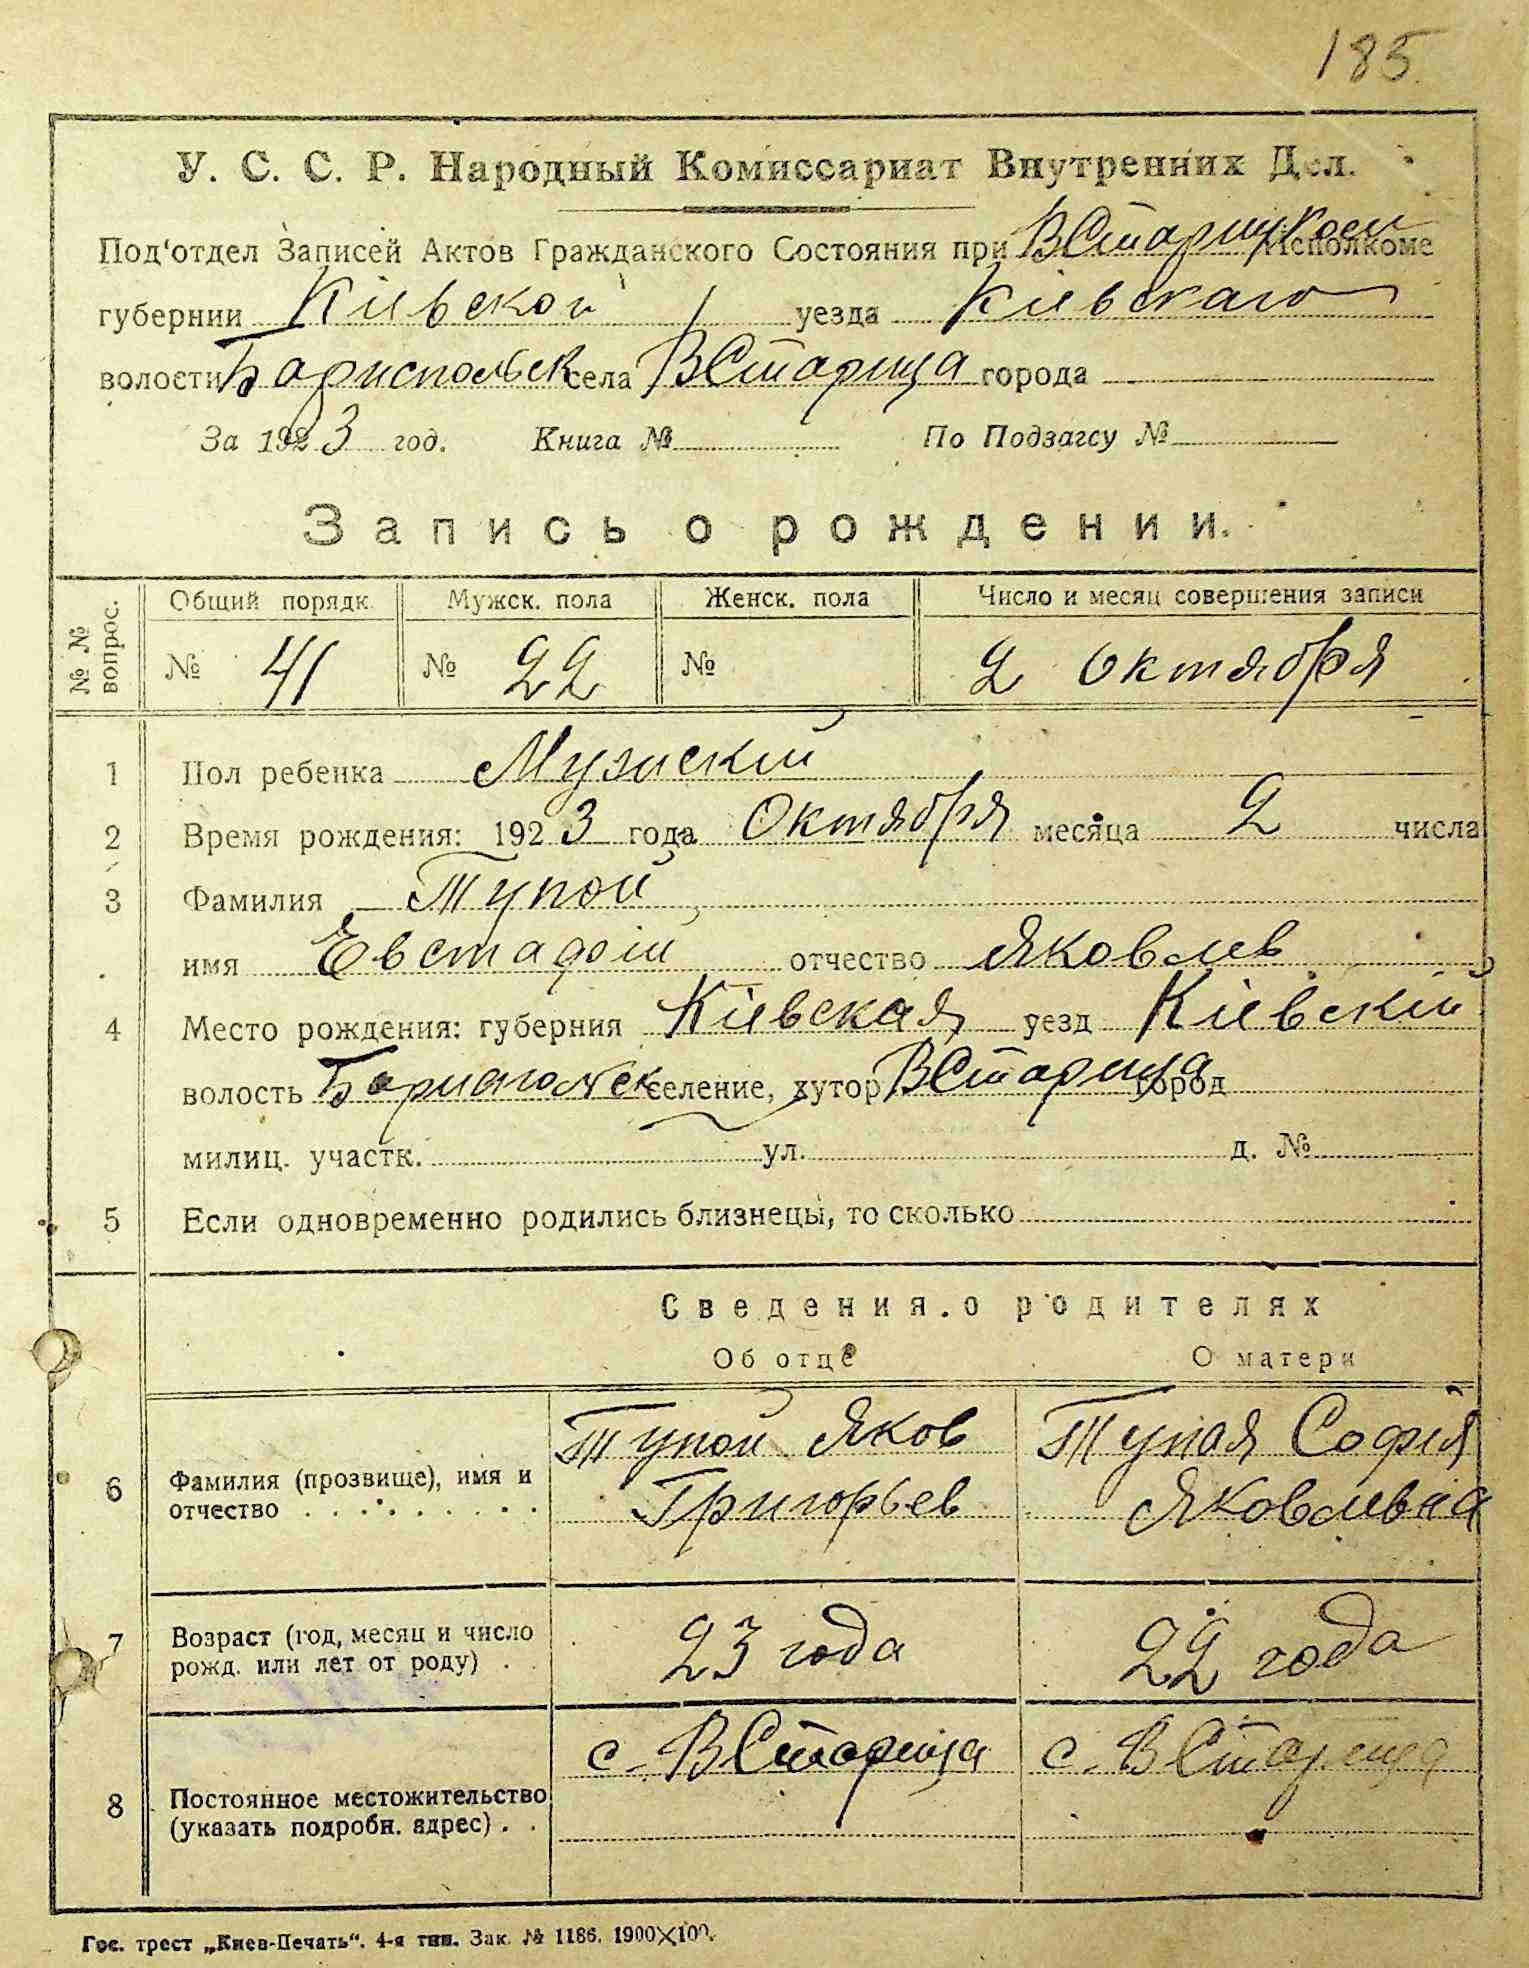 185
У. С. С. Р. Народный Комиссариат Внутренних Дел.
Под'отдел Записей Актов Гражданского Состояния при ВСтарицком Исполкоме
губернии Кіевской уезда Кіевскаго
волости Бориспольск села ВСтарица города
За 1923 год. Книга № По Подзагсу №
Запись о рождении.
№ № вопрос. Общий порядк. Мужск. пола Женск. пола Число и месяц совершения записи
№ 41 № 22 № 2 Октября
1 Пол ребенка Мужскій
2 Время рождения: 1923 года Октября месяца 2 числа
3 Фамилия Тупой
имя Евстафій отчество Яковлев
4 Место рождения: губерния Кіевская уезд Кіевскій
волость Бориспольск селение, хутор ВСтарица город
милиц. участк. ул. д. №
5 Если одновременно родились близнецы, то сколько
Сведения о родителях
Об отце О матери
Тупой Яков Тупая Софія
6 Фамилия (прозвище), имя и
отчество Григорьев Яковлевна
7 Возраст (год, месяц и число
рожд. или лет от роду) 23 года 22 года
с. ВСтарица с. ВСтарица
8 Постоянное местожительство
(указать подробн. адрес)
Гос. трест „Киев-Печать“. 4-я тип. Зак. № 1186. 1900×100.